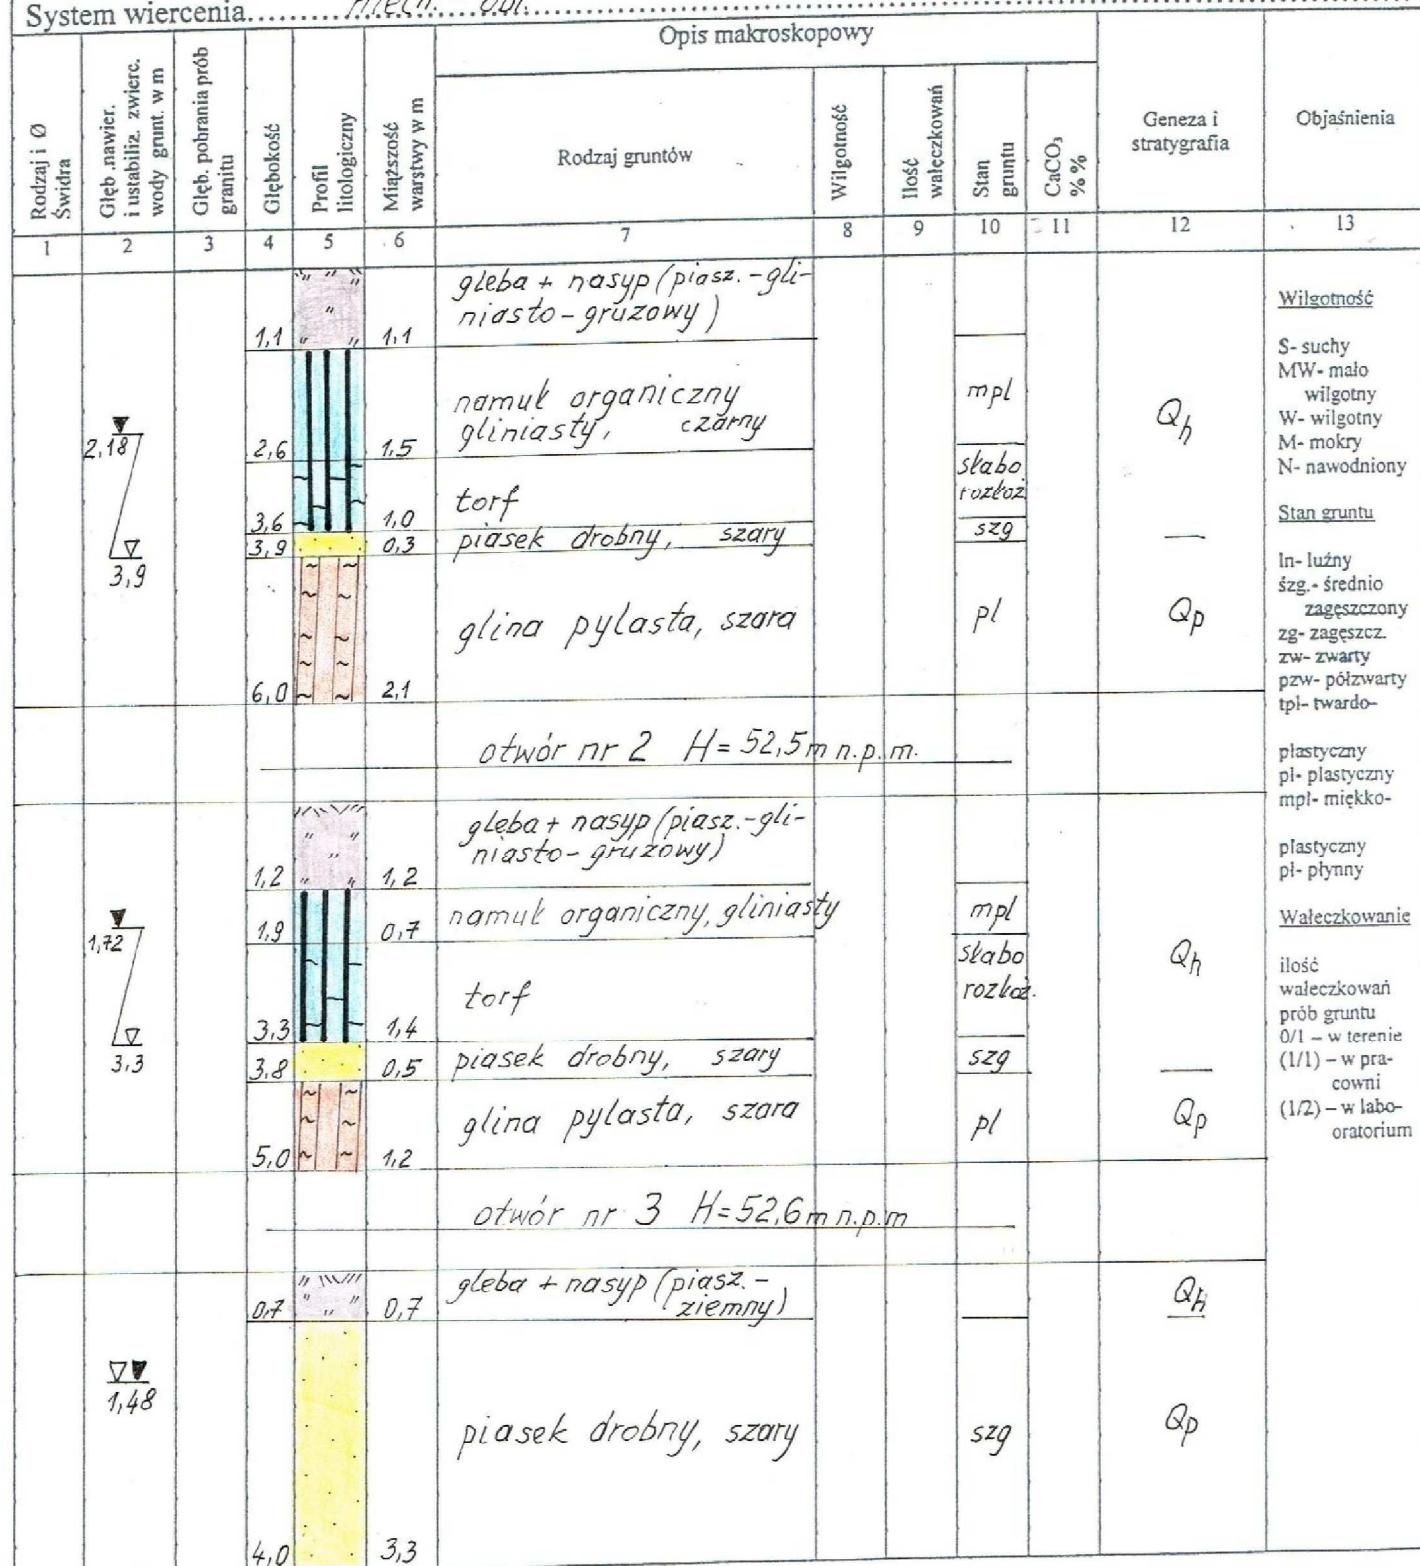 System wiercenia......... mech. obr. .........
Opis makroskopowy
Rodzaj i Ø
Świdra
Głęb .nawier.
i ustabiliz. zwierc.
wody grunt. w m
Głęb. pobrania prób
granitu
Głębokość
Profil
litologiczny
Miąższość
warstwy w m
Rodzaj gruntów
Wilgotność
Ilość
wałeczkowań
Stan
gruntu
CaCO₃
% %
Geneza i
stratygrafia
Objaśnienia
1 2 3 4 5 6 7 8 9 10 11 12 13
gleba + nasyp (piasz.-gli-
niasto-gruzowy)
1,1 1,1
namuł organiczny
gliniasty, czarny
mpl
Qh
2,18
2,6 1,5
torf
słabo
rozłoż.
3,6 1,0
piasek drobny, szary
szg
3,9 0,3
3,9
glina pylasta, szara
pl
Qp
6,0 2,1
otwór nr 2 H= 52,5m n.p.m.
gleba + nasyp (piasz.-gli-
niasto-gruzowy)
1,2 1,2
namuł organiczny, gliniasty
mpl
1,9 0,7
1,72
torf
słabo
rozłoż.
Qh
3,3 1,4
3,3
piasek drobny, szary
szg
3,8 0,5
glina pylasta, szara
pl
Qp
5,0 1,2
otwór nr 3 H=52,6m n.p.m
gleba + nasyp (piasz.-
ziemny)
0,7 0,7
Qh
1,48
piasek drobny, szary
szg
Qp
4,0 3,3
Wilgotność
S- suchy
MW- mało
wilgotny
W- wilgotny
M- mokry
N- nawodniony
Stan gruntu
ln- luźny
śzg.- średnio
zagęszczony
zg- zagęszcz.
zw- zwarty
pzw- półzwarty
tpl- twardo-
plastyczny
pl- plastyczny
mpl- miękko-
plastyczny
pł- płynny
Wałeczkowanie
ilość
wałeczkowań
prób gruntu
0/1 – w terenie
(1/1) – w pra-
cowni
(1/2) – w labo-
oratorium